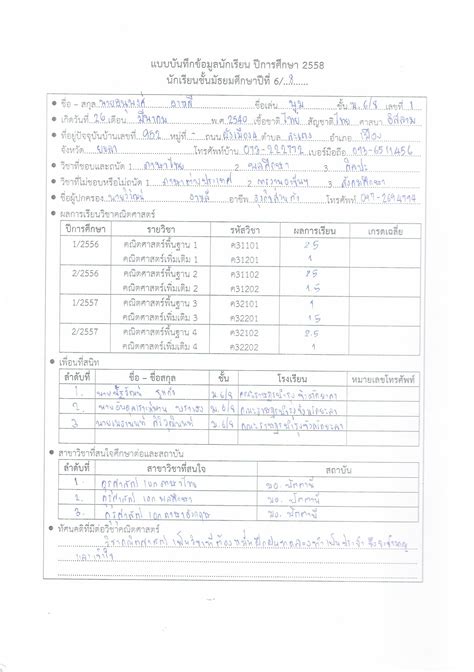 แบบบันทึกข้อมูลนักเรียน ปีการศึกษา 2558
นักเรียนชั้นมัธยมศึกษาปีที่ 6/..8......
ชื่อ – สกุล ชื่อเล่น นุม ชั้น ม.6/8 เลขที่ 1
เกิดวันที่ 26 เดือน มีนาคม พ.ศ. 2540 เชื้อชาติ ไทย สัญชาติ ไทย ศาสนา อิสลาม
ที่อยู่ปัจจุบันบ้านเลขที่ 952 หมู่ที่ - ถนน ผังเมือง 4 ตำบล สะเตง อำเภอ เมือง
จังหวัด ยะลา โทรศัพท์บ้าน 073-222772 เบอร์มือถือ 093-6511456
วิชาที่ชอบและถนัด 1. ภาษาไทย 2. พลศึกษา 3. ศิลปะ
วิชาที่ไม่ชอบหรือไม่ถนัด 1. ภาษาต่างประเทศ 2. การงานอาชีพฯ 3. สังคมศึกษา
ชื่อผู้ปกครอง อาชีพ โทรศัพท์
ผลการเรียนวิชาคณิตศาสตร์
ปีการศึกษา รายวิชา รหัสวิชา ผลการเรียน เกรดเฉลี่ย
1/2556 คณิตศาสตร์พื้นฐาน 1 ค31101 2.5
คณิตศาสตร์เพิ่มเติม 1 ค31201 1
2/2556 คณิตศาสตร์พื้นฐาน 2 ค31102
คณิตศาสตร์เพิ่มเติม 2 ค31202 1.5
1/2557 คณิตศาสตร์พื้นฐาน 3 ค32101 1
คณิตศาสตร์เพิ่มเติม 3 ค32201 1.5
2/2557 คณิตศาสตร์พื้นฐาน 4 ค32102 2.5
คณิตศาสตร์เพิ่มเติม 4 ค32202 1
เพื่อนที่สนิท
ลำดับที่ ชื่อ – ชื่อสกุล ชั้น โรงเรียน หมายเลขโทรศัพท์
1. ม.6/8 คณะราษฎรบำรุงจังหวัดยะลา
2. ม.6/8 คณะราษฎรบำรุงจังหวัดยะลา
3. ม.6/8 คณะราษฎรบำรุงจังหวัดยะลา
สาขาวิชาที่สนใจศึกษาต่อและสถาบัน
ลำดับที่ สาขาวิชาที่สนใจ สถาบัน
1. ครุศาสตร์ เอก ภาษาไทย มอ. ปัตตานี
2. ครุศาสตร์ เอก พลศึกษา มอ. ปัตตานี
3. ครุศาสตร์ เอก ภาษาอังกฤษ มอ. ปัตตานี
ทัศนคติที่มีต่อวิชาคณิตศาสตร์
วิชาคณิตศาสตร์ เป็นวิชาที่ต้องหมั่นฝึกฝน
และเข้าใจ